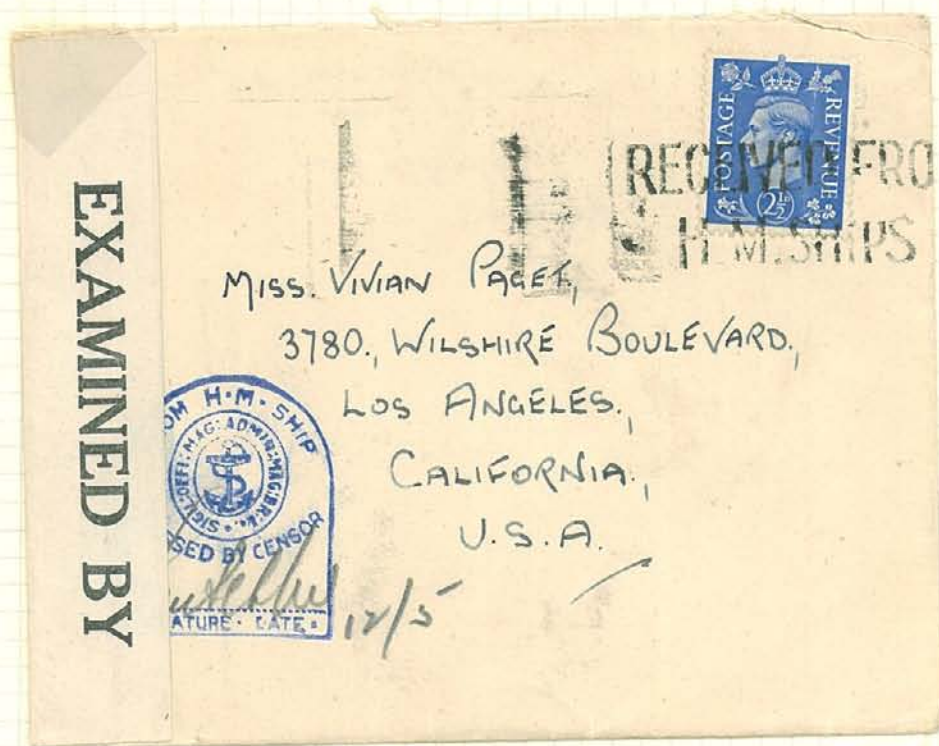 EXAMINED BY
POSTAGE REVENUE
2½D
RECEIVED FRO
H.M. SHIPS
MISS. VIVIAN PAGET,
3780., WILSHIRE BOULEVARD.,
LOS ANGELES.,
CALIFORNIA.,
U.S.A.
OM H·M· SHIP
SIGIL:OFFI:MAG:ADMIR:MAG:BR:
SED BY CENSOR
ATURE· DATE·
12/5